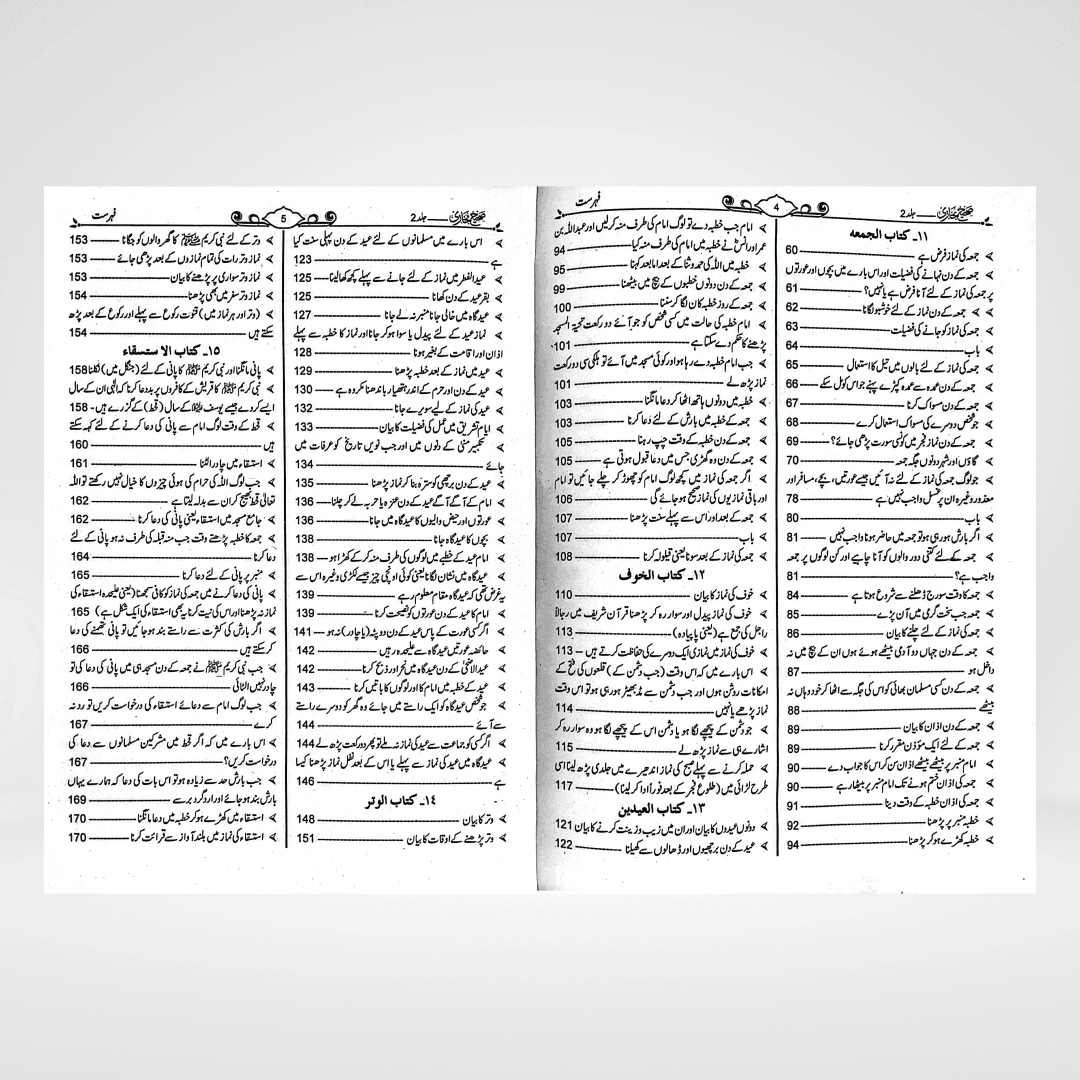 صحیح بخاری ـــــ جلد 2
4
فہرست
١١۔ کتاب الجمعه
جمعہ کی نماز فرض ہے 60
جمعہ کے دن نہانے کی فضیلت اور اس بارے میں بچوں اور عورتوں
پر جمعہ کی نماز کے لئے آنا فرض ہے یا نہیں؟ 61
جمعہ کے دن نماز کے لئے خوشبو لگانا 62
جمعہ کی نماز کو جانے کی فضیلت 63
باب 64
جمعہ کی نماز کے لئے بالوں میں تیل کا استعمال 65
جمعہ کے دن عمدہ سے عمدہ کپڑے پہنے جو اس کو مل سکے 66
جمعہ کے دن مسواک کرنا 67
جو شخص دوسرے کی مسواک استعمال کرے 68
جمعہ کے دن نماز فجر میں کونسی سورت پڑھی جائے؟ 69
گاؤں اور شہر دونوں جگہ جمعہ 70
جو لوگ جمعہ کی نماز کے لئے نہ آئیں جیسے عورتیں، بچے، مسافر اور
معذور وغیرہ ان پر غسل واجب نہیں ہے 78
باب 80
اگر بارش ہو رہی ہو تو جمعہ میں حاضر ہونا واجب نہیں 81
جمعہ کے لئے کتنی دور والوں کو آنا چاہیے اور کن لوگوں پر جمعہ
واجب ہے؟ 81
جمعہ کا وقت سورج ڈھلنے سے شروع ہوتا ہے 84
جمعہ جب سخت گرمی میں آن پڑے 85
جمعہ کی نماز کے لئے چلنے کا بیان 86
جمعہ کے دن جہاں دو آدمی بیٹھے ہوئے ہوں ان کے بیچ میں نہ
داخل ہو 87
جمعہ کے دن کسی مسلمان بھائی کو اس کی جگہ سے اٹھا کر خود وہاں نہ
بیٹھے 88
جمعہ کے دن اذان کا بیان 89
جمعہ کے لئے ایک مؤذن مقرر کرنا 89
امام منبر پر بیٹھے بیٹھے اذان سن کر اس کا جواب دے 90
جمعہ کی اذان ختم ہونے تک امام منبر پر بیٹھا رہے 90
جمعہ کی اذان خطبہ کے وقت دینا 91
خطبہ منبر پر پڑھنا 92
خطبہ کھڑے ہو کر پڑھنا 94
امام جب خطبہ دے تو لوگ امام کی طرف منہ کر لیں اور عبداللہ بن
عمر اور انسؓ نے خطبہ میں امام کی طرف منہ کیا 94
خطبہ میں اللہ کی حمد و ثنا کے بعد اما بعد کہنا 95
جمعہ کے دن دونوں خطبوں کے بیچ میں بیٹھنا 99
جمعہ کے روز خطبہ کان لگا کر سننا 100
امام خطبہ کی حالت میں کسی شخص کو جو آئے دو رکعت تحیۃ المسجد
پڑھنے کا حکم دے سکتا ہے 101
جب امام خطبہ دے رہا ہو اور کوئی مسجد میں آئے تو ہلکی سی دو رکعت
نماز پڑھ لے 101
خطبہ میں دونوں ہاتھ اٹھا کر دعا مانگنا 103
جمعہ کے خطبہ میں بارش کے لئے دعا کرنا 103
جمعہ کے دن خطبہ کے وقت چپ رہنا 105
جمعہ کے دن وہ گھڑی جس میں دعا قبول ہوتی ہے 105
اگر جمعہ کی نماز میں کچھ لوگ امام کو چھوڑ کر چلے جائیں تو امام
اور باقی نمازیوں کی نماز صحیح ہو جائے گی 106
جمعہ کے بعد اور اس سے پہلے سنت پڑھنا 107
باب 107
جمعہ کی نماز کے بعد سونا یعنی قیلولہ کرنا 108
١٢۔ کتاب الخوف
خوف کی نماز کا بیان 110
خوف کی نماز پیدل اور سوار رہ کر پڑھنا قرآن شریف میں رجالاً
راجل کی جمع ہے (یعنی پاپیادہ) 113
خوف کی نماز میں نمازی ایک دوسرے کی حفاظت کرتے ہیں 113
اس بارے میں کہ اس وقت (جب دشمن کے) قلعوں کی فتح کے
امکانات روشن ہوں اور جب دشمن سے مڈبھیڑ ہو رہی ہو تو اس وقت
نماز پڑھے یا نہیں 114
جو دشمن کے پیچھے لگا ہو یا دشمن اس کے پیچھے لگا ہو وہ سوار رہ کر
اشارے ہی سے نماز پڑھ لے 115
حملہ کرنے سے پہلے صبح کی نماز اندھیرے میں جلدی پڑھ لینا اسی
طرح لڑائی میں (طلوع فجر کے بعد فوراً ادا کر لینا) 117
١٣۔ کتاب العیدین
دونوں عیدوں کا بیان اور ان میں زیب و زینت کرنے کا بیان 121
عید کے دن برچھیوں اور ڈھالوں سے کھیلنا 122
صحیح بخاری ـــــ جلد 2
5
فہرست
اس بارے میں مسلمانوں کے لئے عید کے دن پہلی سنت کیا
ہے 123
عیدالفطر میں نماز کے لئے جانے سے پہلے کچھ کھا لینا 125
بقر عید کے دن کھانا 125
عیدگاہ میں خالی جانا منبر نہ لے جانا 127
نماز عید کے لئے پیدل یا سوار ہو کر جانا اور نماز کا خطبہ سے پہلے
اذان اور اقامت کے بغیر ہونا 128
عید میں نماز کے بعد خطبہ پڑھنا 129
عید کے دن اور حرم کے اندر ہتھیار باندھنا مکروہ ہے 130
عید کی نماز کے لیے سویرے جانا 132
ایام تشریق میں عمل کی فضیلت کا بیان 133
تکبیر منیٰ کے دنوں میں اور جب نویں تاریخ کو عرفات میں
جائے 134
عید کے دن برچھی کو سترہ بنا کر نماز پڑھنا 135
امام کے آگے آگے عید کے دن عنزہ یا حربہ لے کر چلنا 136
عورتوں اور حیض والیوں کا عیدگاہ میں جانا 136
بچوں کا عیدگاہ جانا 138
امام عید کے خطبے میں لوگوں کی طرف منہ کر کے کھڑا ہو 138
عیدگاہ میں نشان لگانا یعنی کوئی اونچی چیز جیسے لکڑی وغیرہ اس سے
یہ غرض تھی کہ عیدگاہ مقام معلوم رہے 139
امام کا عید کے دن عورتوں کو نصیحت کرنا 139
اگر کسی عورت کے پاس عید کے دن دوپٹہ (یا چادر) نہ ہو 141
حائضہ عورتیں عیدگاہ سے علیحدہ رہیں 142
عیدالاضحیٰ کے دن عیدگاہ میں نحر اور ذبح کرنا 142
عید کے خطبہ میں امام کا اور لوگوں کا باتیں کرنا 143
جو شخص عیدگاہ کو ایک راستے میں جائے وہ گھر کو دوسرے راستے
سے آئے 144
اگر کسی کو جماعت سے عید کی نماز نہ ملے تو پھر دو رکعت پڑھ لے 144
عیدگاہ میں عید کی نماز سے پہلے یا اس کے بعد نفل نماز پڑھنا کیسا
ہے 146
١٤۔ کتاب الوتر
وتر کا بیان 148
وتر پڑھنے کے اوقات کا بیان 151
وتر کے لئے نبی کریم ﷺ کا گھر والوں کو جگانا 153
نماز وتر رات کی تمام نمازوں کے بعد پڑھی جائے 153
نماز وتر سواری پر پڑھنے کا بیان 153
نماز وتر سفر میں بھی پڑھنا 154
(وتر اور ہر نماز میں) قنوت رکوع سے پہلے اور رکوع کے بعد پڑھ
سکتے ہیں 154
١٥۔ کتاب الاستسقاء
پانی مانگنا اور نبی کریم ﷺ کا پانی کے لئے (جنگل میں) نکلنا 158
نبی کریم ﷺ کا قریش کے کافروں پر بددعا کرنا کہ الٰہی ان کے سال
ایسے کر دے جیسے یوسف علیہ السلام کے سال (قحط) کے گزرے ہیں۔ 158
قحط کے وقت لوگ امام سے پانی کی دعا کرنے کے لئے کہہ سکتے
ہیں 160
استسقاء میں چادر الٹنا 161
جب لوگ اللہ کی حرام کی ہوئی چیزوں کا خیال نہیں رکھتے تو اللہ
تعالیٰ قحط بھیج کر ان سے بدلہ لیتا ہے 162
جامع مسجد میں استسقاء یعنی پانی کی دعا کرنا 162
جمعہ کا خطبہ پڑھتے وقت جب منہ قبلہ کی طرف نہ ہو پانی کے لئے
دعا کرنا 164
منبر پر پانی کے لئے دعا کرنا 165
پانی کی دعا کرنے میں جمعہ کی نماز کو کافی سمجھنا (یعنی علیحدہ استسقاء کی
نماز نہ پڑھنا اور اس کی نیت کرنا یہ بھی استسقاء کی ایک شکل ہے) 165
اگر بارش کی کثرت سے راستے بند ہو جائیں تو پانی تھمنے کی دعا
کر سکتے ہیں 166
جب نبی کریم ﷺ نے جمعہ کے دن مسجد ہی میں پانی کی دعا کی تو
چادر نہیں الٹائی 166
جب لوگ امام سے دعائے استسقاء کی درخواست کریں تو رد نہ
کرے 167
اس بارے میں کہ اگر قحط میں مشرکین مسلمانوں سے دعا کی
درخواست کریں؟ 167
جب بارش حد سے زیادہ ہو تو اس بات کی دعا کہ ہمارے یہاں
بارش بند ہو جائے اور ارد گرد برسے 169
استسقاء میں کھڑے ہو کر خطبہ میں دعا مانگنا 170
استسقاء کی نماز میں بلند آواز سے قرائت کرنا 170